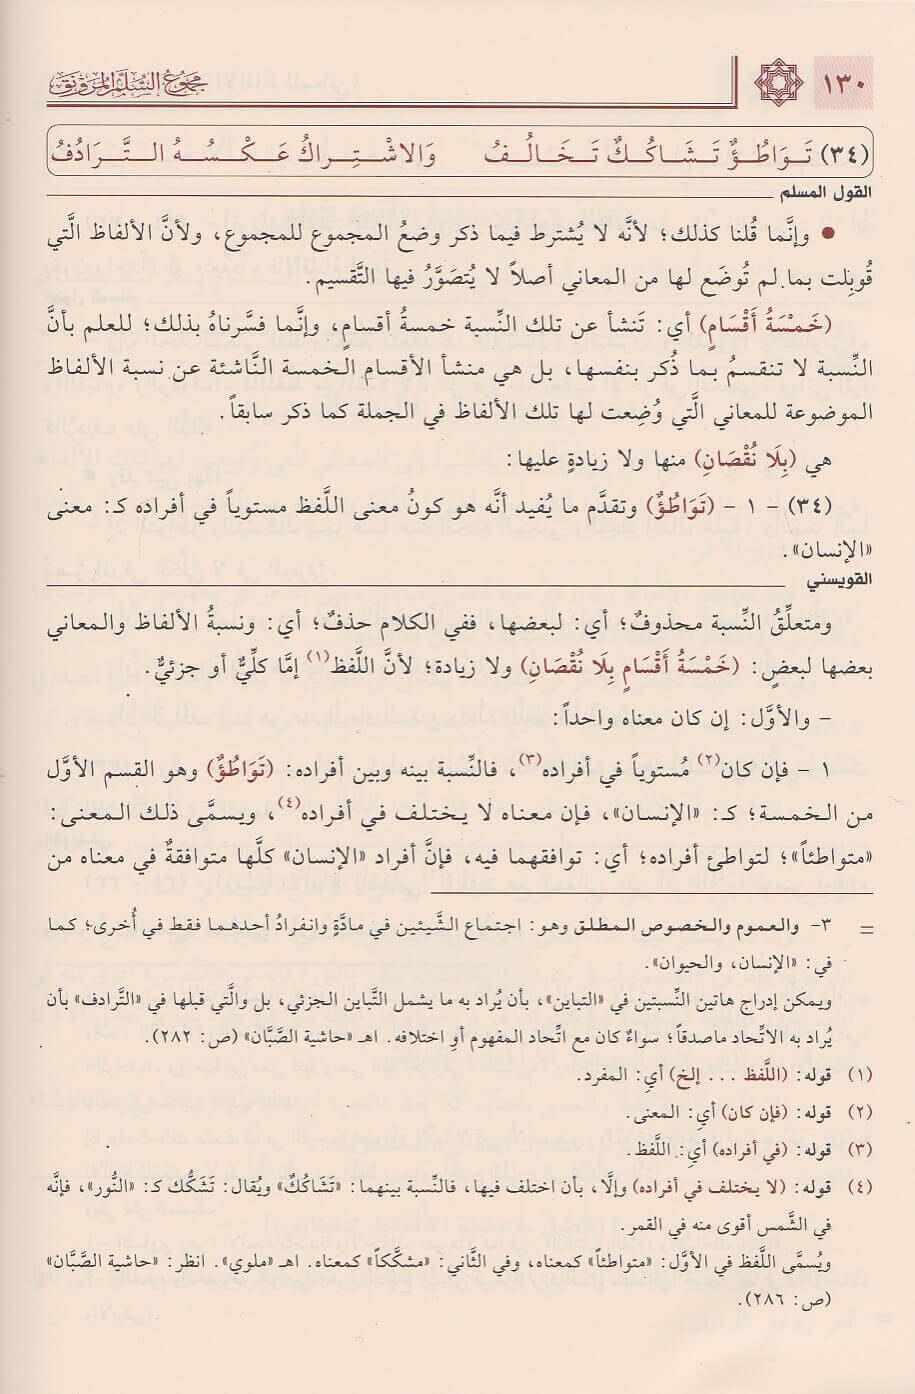 ١٣٠
مجموع السلم المرونق
(٣٤) تَوَاطُؤٌ تَشَاكُكٌ تَخَالُفُ وَالاشْتِراكُ عَكْسُهُ التَّرَادُفُ
القول المسلم
● وإنَّما قُلنا كذلك؛ لأنَّه لا يُشترط فيما ذكر وضعُ المجموع للمجموع، ولأنَّ الألفاظ الَّتي
قُوبِلت بما لم تُوضَع لها من المعاني أصلاً لا يُتصَوَّرُ فيها التَّقسيم.
(خَمْسَةُ أَقْسَامٍ) أي: تَنشأ عن تلك النِّسبة خمسةُ أقسامٍ، وإنَّما فسَّرناهُ بذلك؛ للعلم بأنَّ
النِّسبة لا تنقسمُ بما ذُكر بنفسها، بل هي منشأ الأقسام الخمسة النَّاشئة عن نسبة الألفاظ
الموضوعة للمعاني الَّتي وُضِعت لها تلك الألفاظ في الجملة كما ذكر سابقاً.
هي (بِلَا نُقْصَانِ) منها ولا زيادةٍ عليها:
(٣٤) - ١ - (تَوَاطُؤٌ) وتقدَّم ما يُفيد أنَّه هو كونُ معنى اللَّفظ مستوياً في أفراده كـ: معنى
«الإنسان».
القويسني
ومتعلِّقُ النِّسبة محذوفٌ؛ أي: لبعضها، ففي الكلام حذفٌ؛ أي: ونسبةُ الألفاظ والمعاني
بعضها لبعضٍ: (خَمْسَةُ أَقْسَامٍ بِلَا نُقْصَانِ) ولا زيادة؛ لأنَّ اللَّفظ(١) إمَّا كلِّيٌّ أو جزئيٌّ.
- والأوَّل: إن كان معناه واحداً:
١ - فإن كان(٢) مُستوياً في أفراده(٣)، فالنِّسبة بينه وبين أفراده: (تَوَاطُؤٌ) وهو القسم الأوَّل
من الخمسة؛ كـ: «الإنسان»، فإن معناه لا يختلف في أفراده(٤)، ويسمَّى ذلك المعنى:
«متواطئاً»؛ لتواطئ أفراده؛ أي: توافقهما فيه، فإنَّ أفراد «الإنسان» كلَّها متوافقةٌ في معناه من
= ٣- والعموم والخصوص المطلق وهو: اجتماع الشَّيئين في مادَّةٍ وانفرادُ أحدهما فقط في أُخرى؛ كما
في: «الإنسان، والحيوان».
ويمكن إدراج هاتين النِّسبتين في «التباين»، بأن يُراد به ما يشمل التَّباين الجزئي، بل والَّتي قبلها في «التَّرادف» بأن
يُراد به الاتِّحاد ماصدقاً؛ سواءٌ كان مع اتِّحاد المفهوم أو اختلافه. اهـ «حاشية الصَّبَّان» (ص: ٢٨٢).
(١) قوله: (اللَّفظ ... إلخ) أي: المفرد.
(٢) قوله: (فإن كان) أي: المعنى.
(٣) قوله: (في أفراده) أي: اللَّفظ.
(٤) قوله: (لا يختلف في أفراده) وإلَّا، بأن اختلف فيها، فالنِّسبة بينهما: «تَشَاكُكٌ» ويُقال: تَشَكُّك كـ: «النُّور»، فإنَّه
في الشَّمس أقوى منه في القمر.
ويُسمَّى اللَّفظ في الأوَّل: «متواطئاً» كمعناه، وفي الثَّاني: «مشكَّكاً» كمعناه. اهـ «ملوي». انظر: «حاشية الصَّبَّان»
(ص: ٢٨٦).